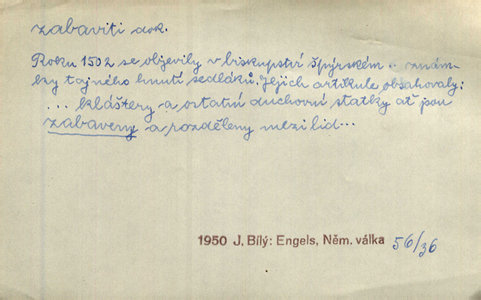 zabaviti dok.
Roku 1502 se objevily v biskupství špýrském .. znám-
ky tajného hnutí sedláků. Jejich artikule obsahovaly:
... kláštery a ostatní duchovní statky ať jsou
zabaveny a rozděleny mezi lid...
1950 J. Bílý: Engels, Něm. válka 56/36